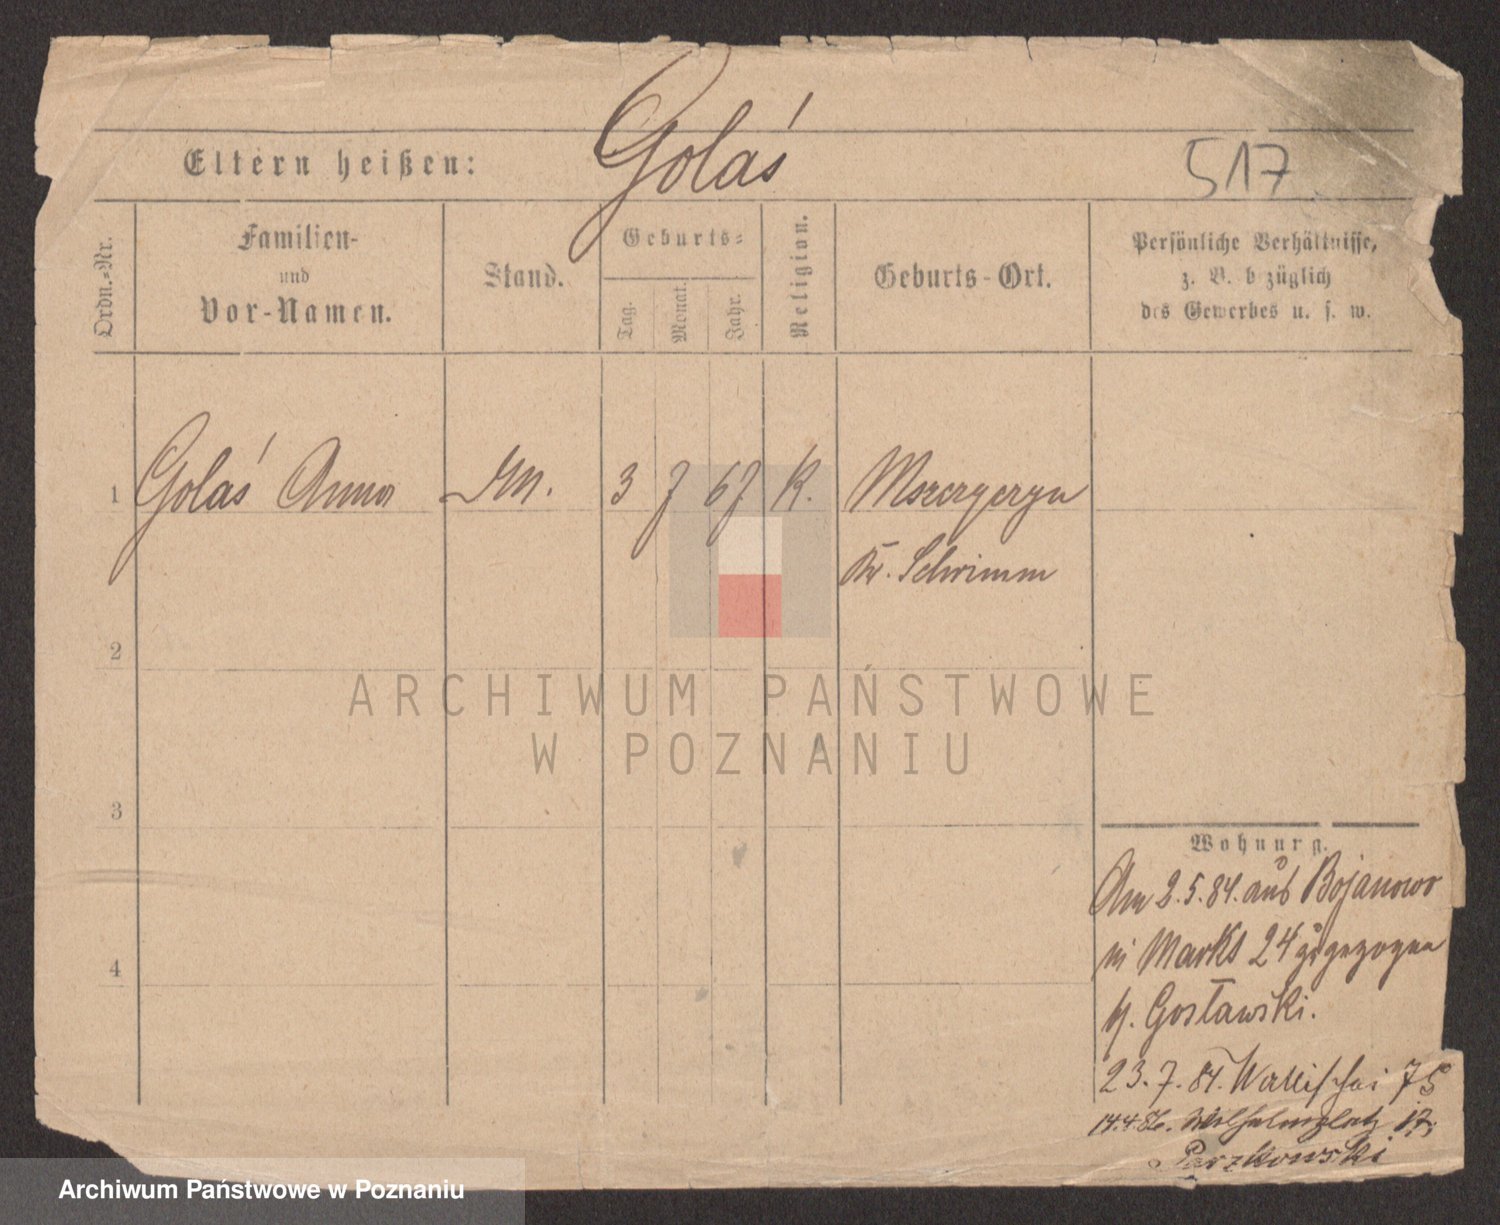 Golaś
Eltern heißen:
517
Ordn.-Nr.
Familien-
und
Vor-Namen.
Stand.
Geburts-
Tag.
Monat.
Jahr.
Religion.
Geburts-Ort.
Persönliche Verhältnisse,
z. B. bezüglich
des Gewerbes u. s. w.
1
Golaś Anna
3 7 67 K.
Kr. Schrimm
2
ARCHIWUM PAŃSTWOWE
W POZNANIU
3
Wohnung.
Am 2.5.84. aus Bojanowo
in Markt 24 zugezogen
b. Gosławski.
4
23.7.84. Wallischei 75
14.4.86. Wilhelmsplatz 17,
Parzkowski
Archiwum Państwowe w Poznaniu